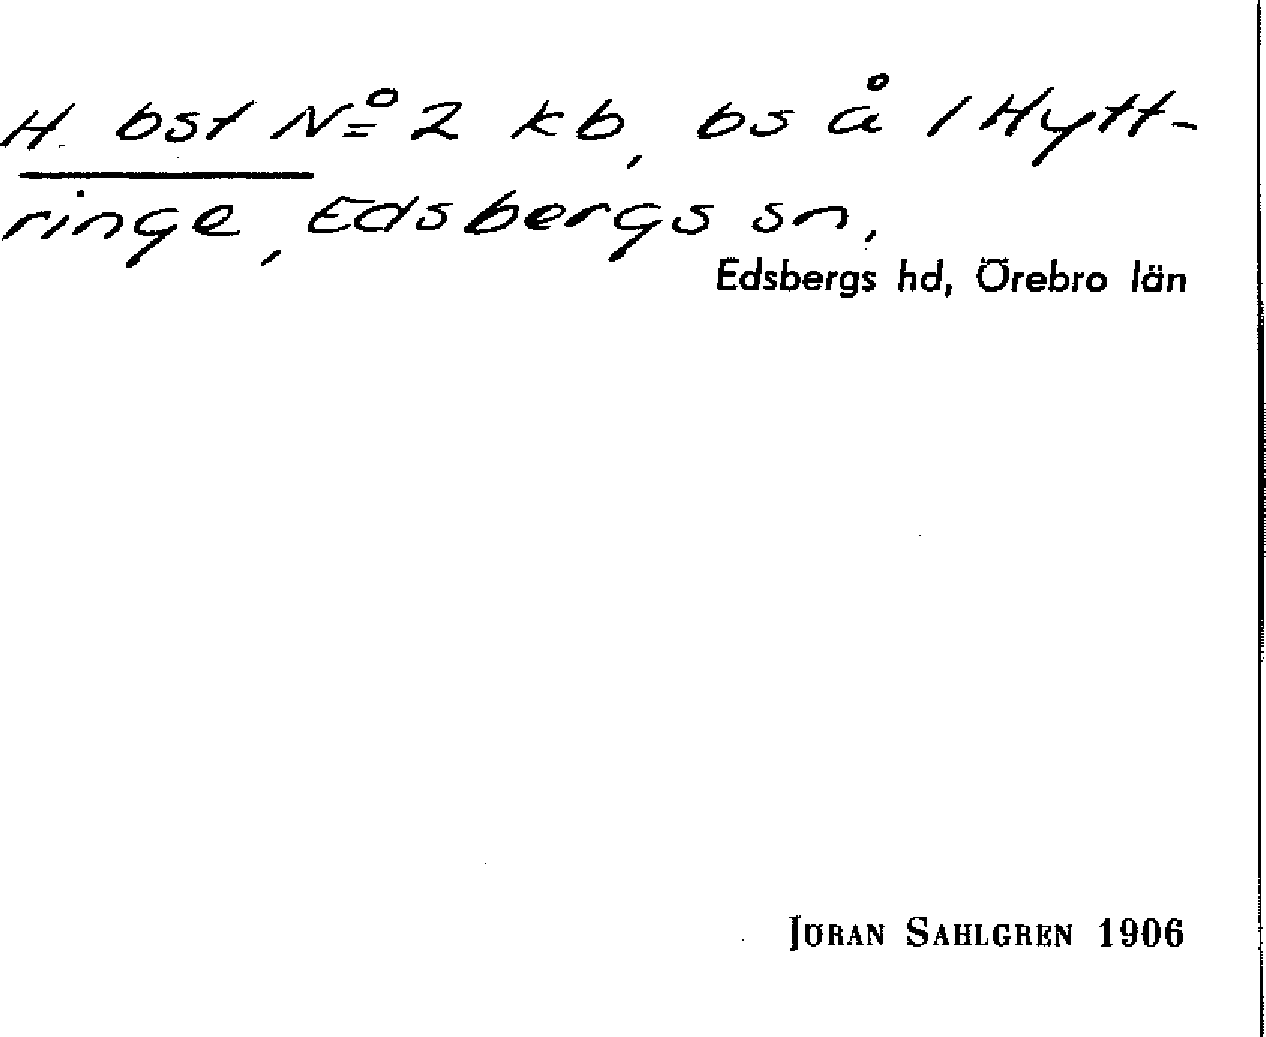 H. bst Nº 2 kb, bs å 1 Hytt-
ringe, Edsbergs sn,
Edsbergs hd, Örebro län
JÖRAN SAHLGREN 1906